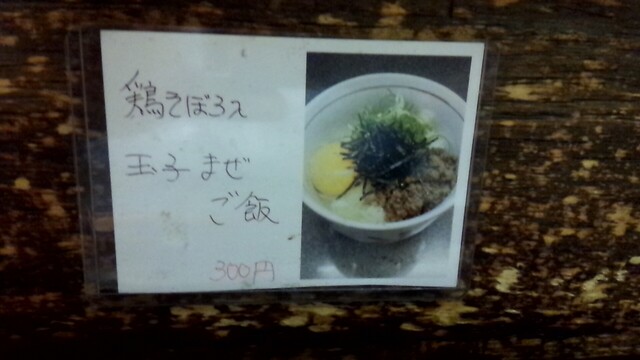 鶏そぼろと
玉子まぜ
ご飯
300円